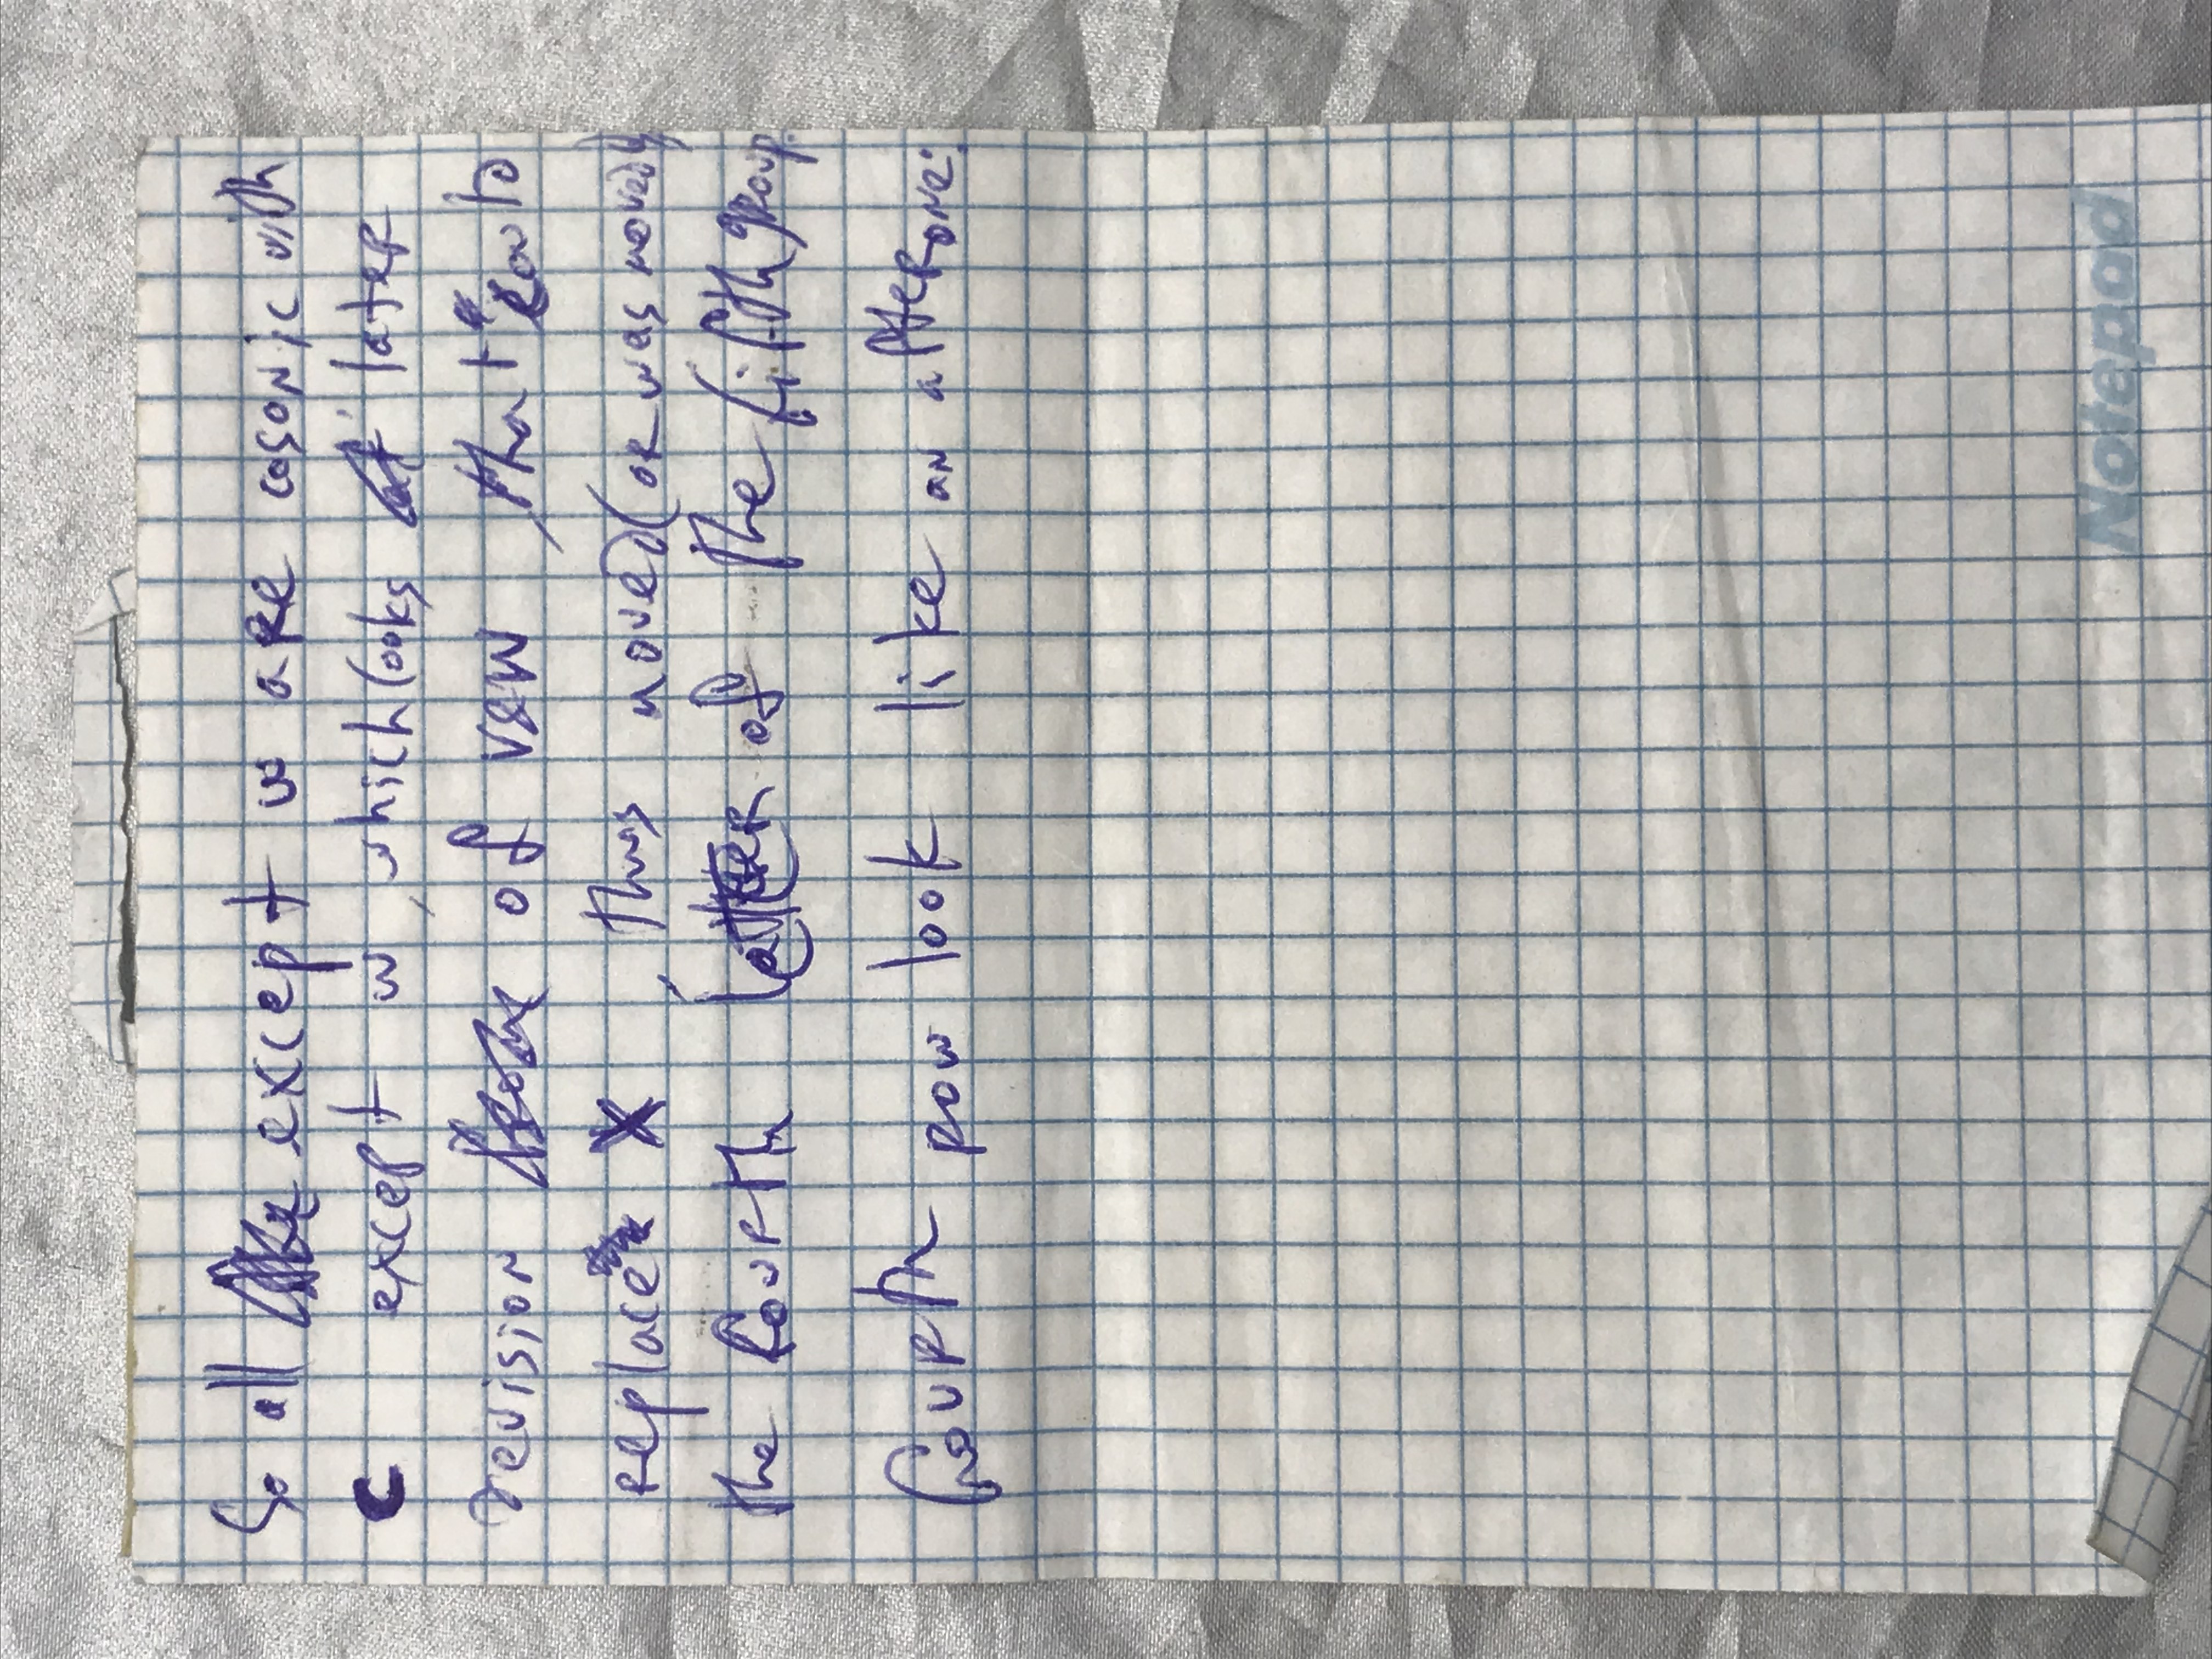 So all except w are cosonic with
C except w, which looks later
revision of vsw, that to
replace X, thus moved (or was moved)
the fourth letter of the fifth group.
Fourth row look like an after one:
Notepad